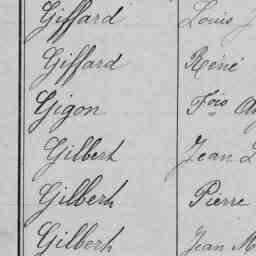 Giffard Louis J
Giffard René
Gigon Fois Au
Gilbert Jean L
Gilbert Pierre
Gilbert Jean M